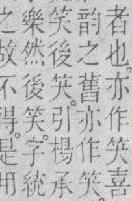 者也亦作笑喜
韵之舊亦作笑。
笑後笑。引楊承
樂然後笑。字統
之故不得。是用